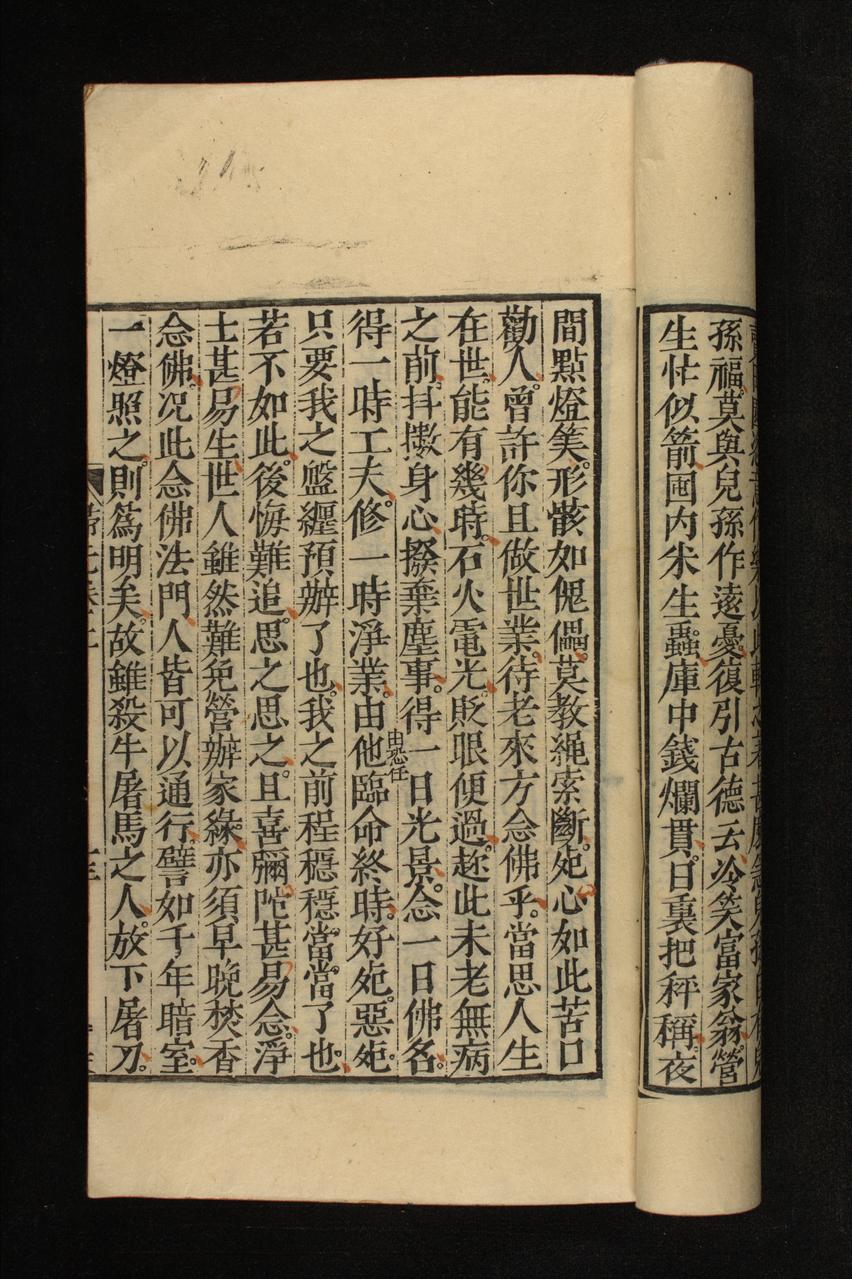 孫福莫與兒孫作遠憂復引古德云冷笑富家翁營
生忙似箭囤内米生蟲庫中錢爛貫日裏把秤稱夜
間點燈筭形骸如傀儡莫教繩索斷死心如此苦口
勸人曾許你且做世業待老來方念佛乎當思人生
在世能有幾時石火電光貶眼便過趂此未老無病
之前抖擻身心撥棄塵事得一日光景念一日佛名
得一時工夫修一時淨業由他臨命終時好死惡死
由忽任
只要我之盤纏預辦了也我之前程穩穩當當了也
若不如此後悔難追思之思之且喜彌陀甚易念淨
土甚易生世人雖然難免營辦家緣亦須早晚焚香
念佛况此念佛法門人皆可以通行譬如千年暗室
一燈照之則為明矣故雖殺牛屠馬之人放下屠刀